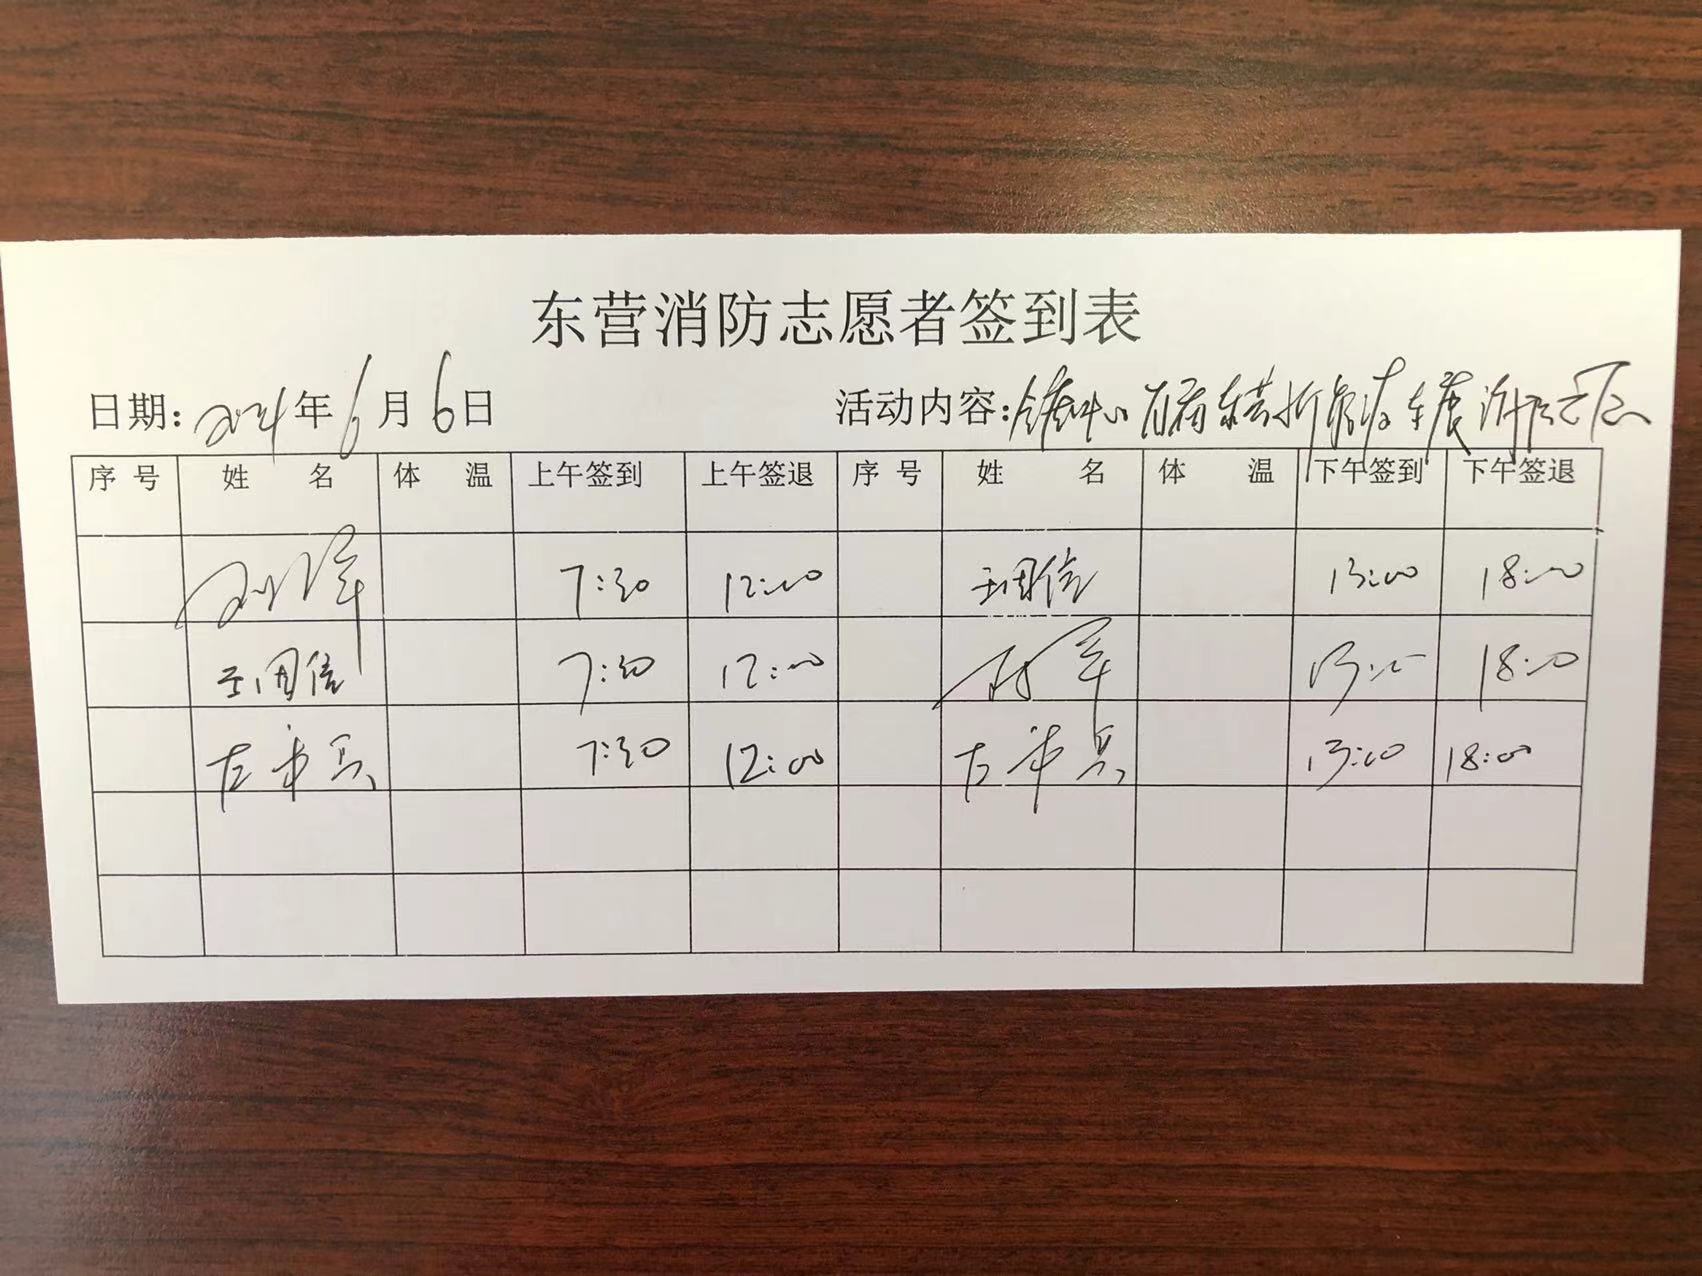 东营消防志愿者签到表
日期: 2024年6月6日 活动内容:
序号 姓名 体温 上午签到 上午签退 序号 姓名 体温 下午签到 下午签退
7:30 12:00 王国信 13:00 18:00
王国信 7:30 12:00 13:00 18:00
左希兵 7:30 12:00 左希兵 13:00 18:00